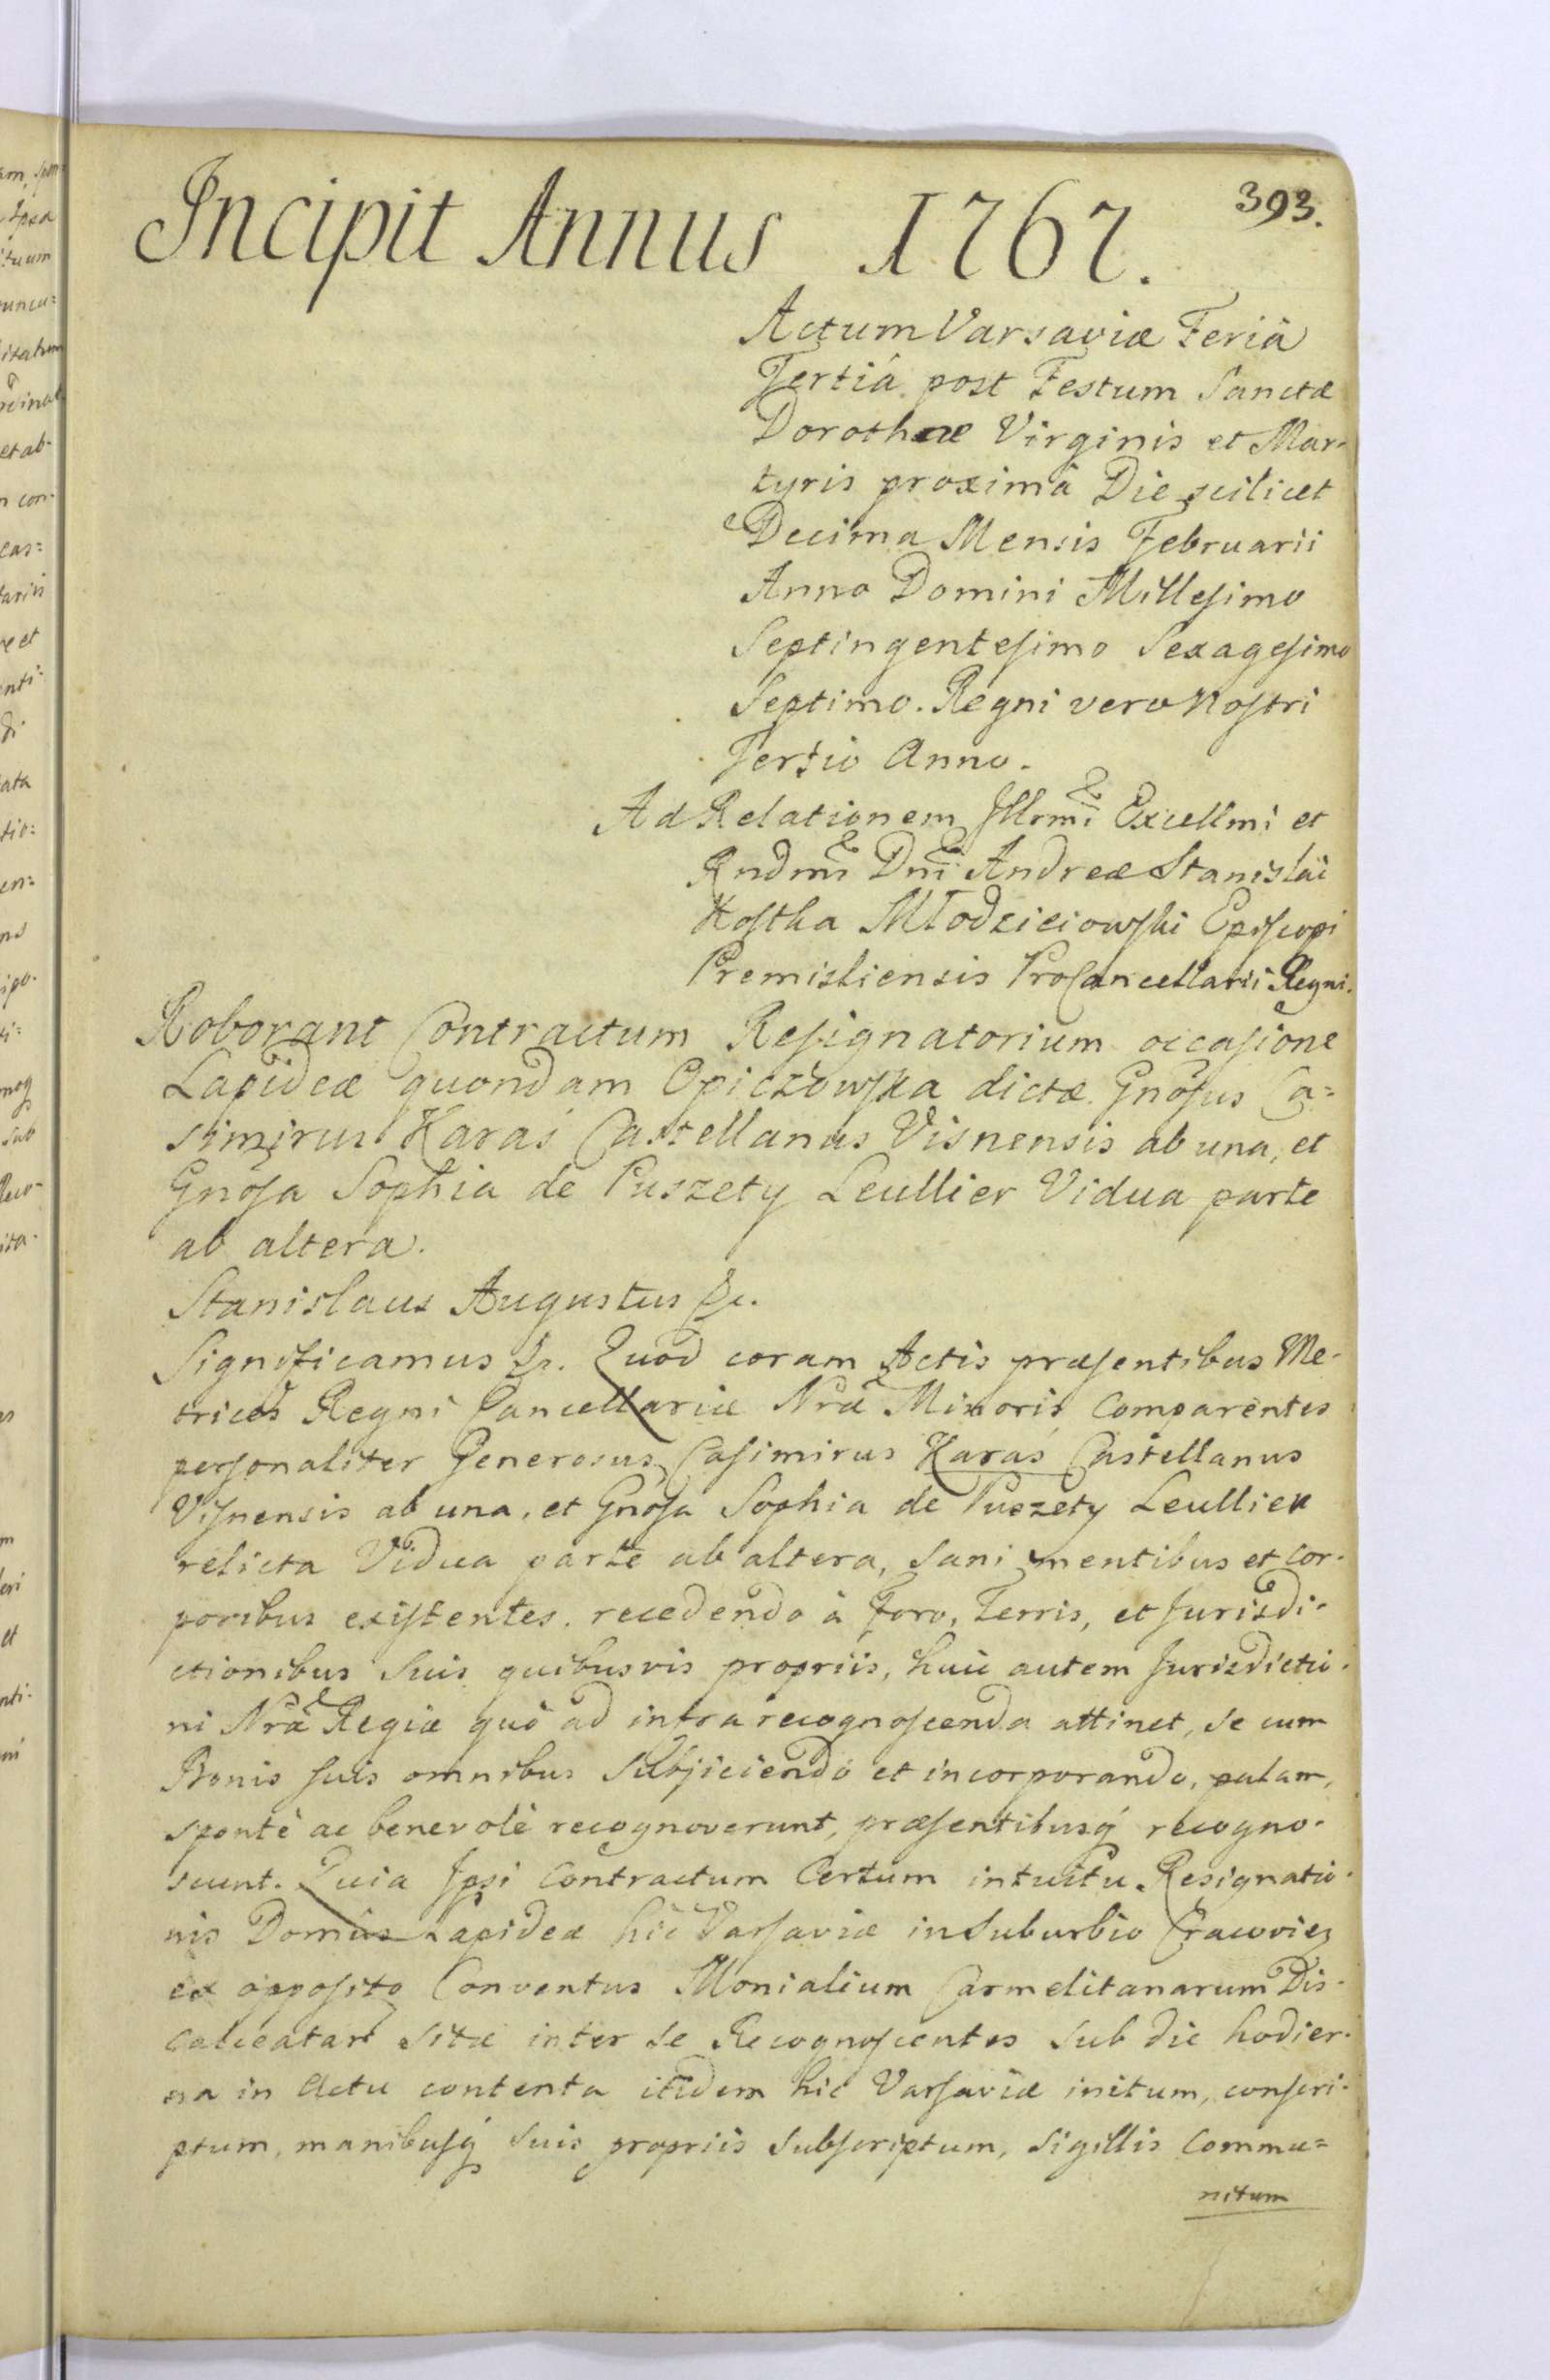 393.
Incipit Annus 1767.
Actum Varsaviæ Feriâ
Tertiâ post Festum Sanctæ
Dorotheæ Virginis et Mar-
tyris proximâ Die scilicet
Decima Mensis Februarii
Anno Domini Millesimo
Septingentesimo Sexagesimo
Septimo. Regni vero Nostri
Tertio Anno.
Ad Relationem Illrmi Excellmi et
Rndmi Dni Andreæ Stanislai
Kostka Młodzieiowski Episcopi
Premisliensis ProCancellarii Regni.
Roborant Contractum Resignatorium occasione
Lapideæ quondam Opiczowska dictæ Gnosus Ca=
simirus Karaś Castellanus Visnensis ab una, et
Gnosa Sophia de Puszety Leullier Vidua parte
ab altera.
Stanislaus Augustus &c.
Significamus &c. Quod coram Actis præsentibus Me-
trices Regni Cancellariæ Nræ Minoris Comparentes
personaliter Generosus Casimirus Karaś Castellanus
Visnensis ab una, et Gnosa Sophia de Puszety Leullier
relicta Vidua parte ab altera, sani mentibus et cor-
poribus existentes. recedendo à Foro, Terris, et Jurisdi-
ctionibus suis quibusvis propriis, huic autem Jurisdictio-
ni Nræ Regiæ quò ad infra recognoscenda attinet, se cum
Bonis suis omnibus subjiciendo et incorporando, palam,
spontè ac benevolè recognoverunt, præsentibusq́ recogno-
scunt. Quia Ipsi Contractum Certum intuitu Resignatio-
nis Domûs Lapideæ hic Varsaviæ in Suburbio Cracovien
ex opposito Conventus Monialium Carmelitanarum Dis-
calceatar sitæ inter se Recognoscentes sub die hodier-
na in Actu contenta itidem hic Varsaviæ initum, conscri-
ptum, manibusq́ suis propriis subscriptum, sigillis Commu=
nitum